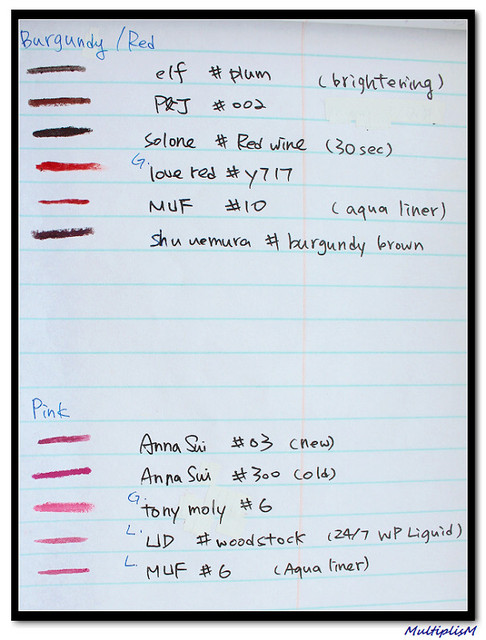 Burgundy / Red
elf # plum (brightening)
P&J # 002
solone # Red wine (30 sec)
G. love red # Y717
MUF #10 (aqua liner)
shu uemura # burgundy brown
Pink
Anna Sui #03 (new)
Anna Sui #300 (old)
G. tony moly #6
L. UD # woodstock (24/7 WP Liquid)
L. MUF #6 (Aqua liner)
MultiplisM